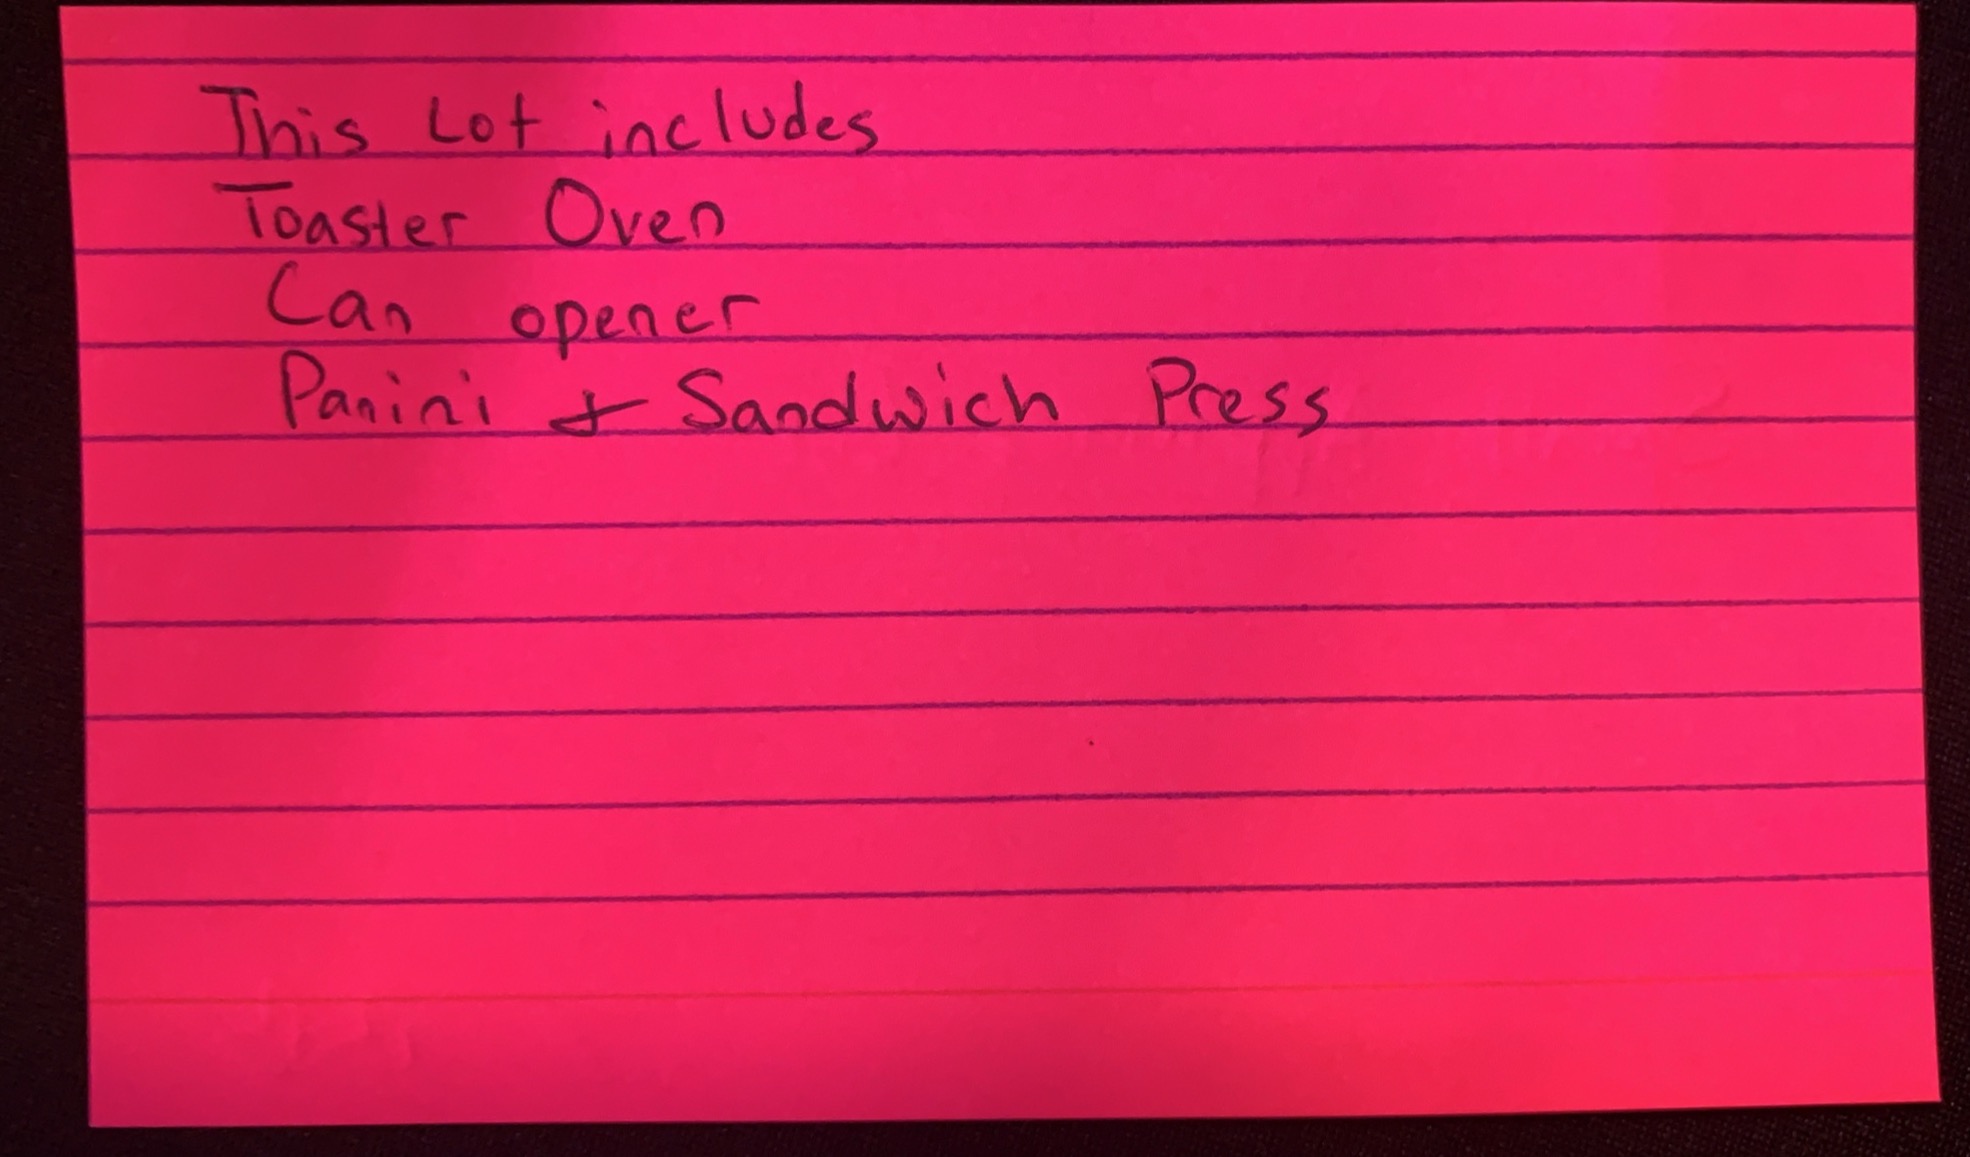 This Lot includes
Toaster Oven
Can opener
Panini & Sandwich Press